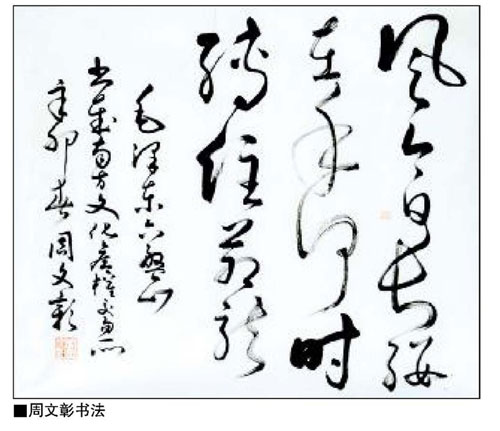 风今日长缨
在手何时
缚住苍龙
毛泽东六盘山
书南方文化产权交易所
辛卯春周文彰
■周文彰书法